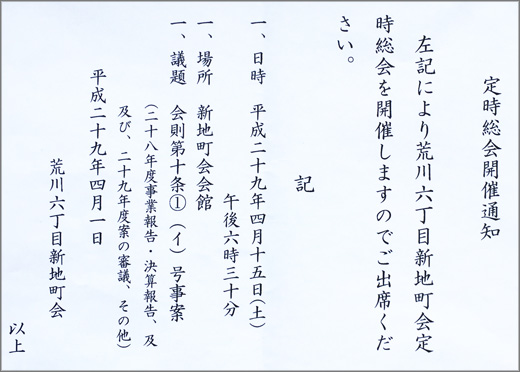 定時総会開催通知
左記により荒川六丁目新地町会定
時総会を開催しますのでご出席くだ
さい。
記
一、日時　平成二十九年四月十五日(土)
午後六時三十分
一、場所　新地町会会館
一、議題　会則第十条①（イ）号事案
（二十八年度事業報告・決算報告、及
及び、二十九年度案の審議、その他）
平成二十九年四月一日
荒川六丁目新地町会
以上